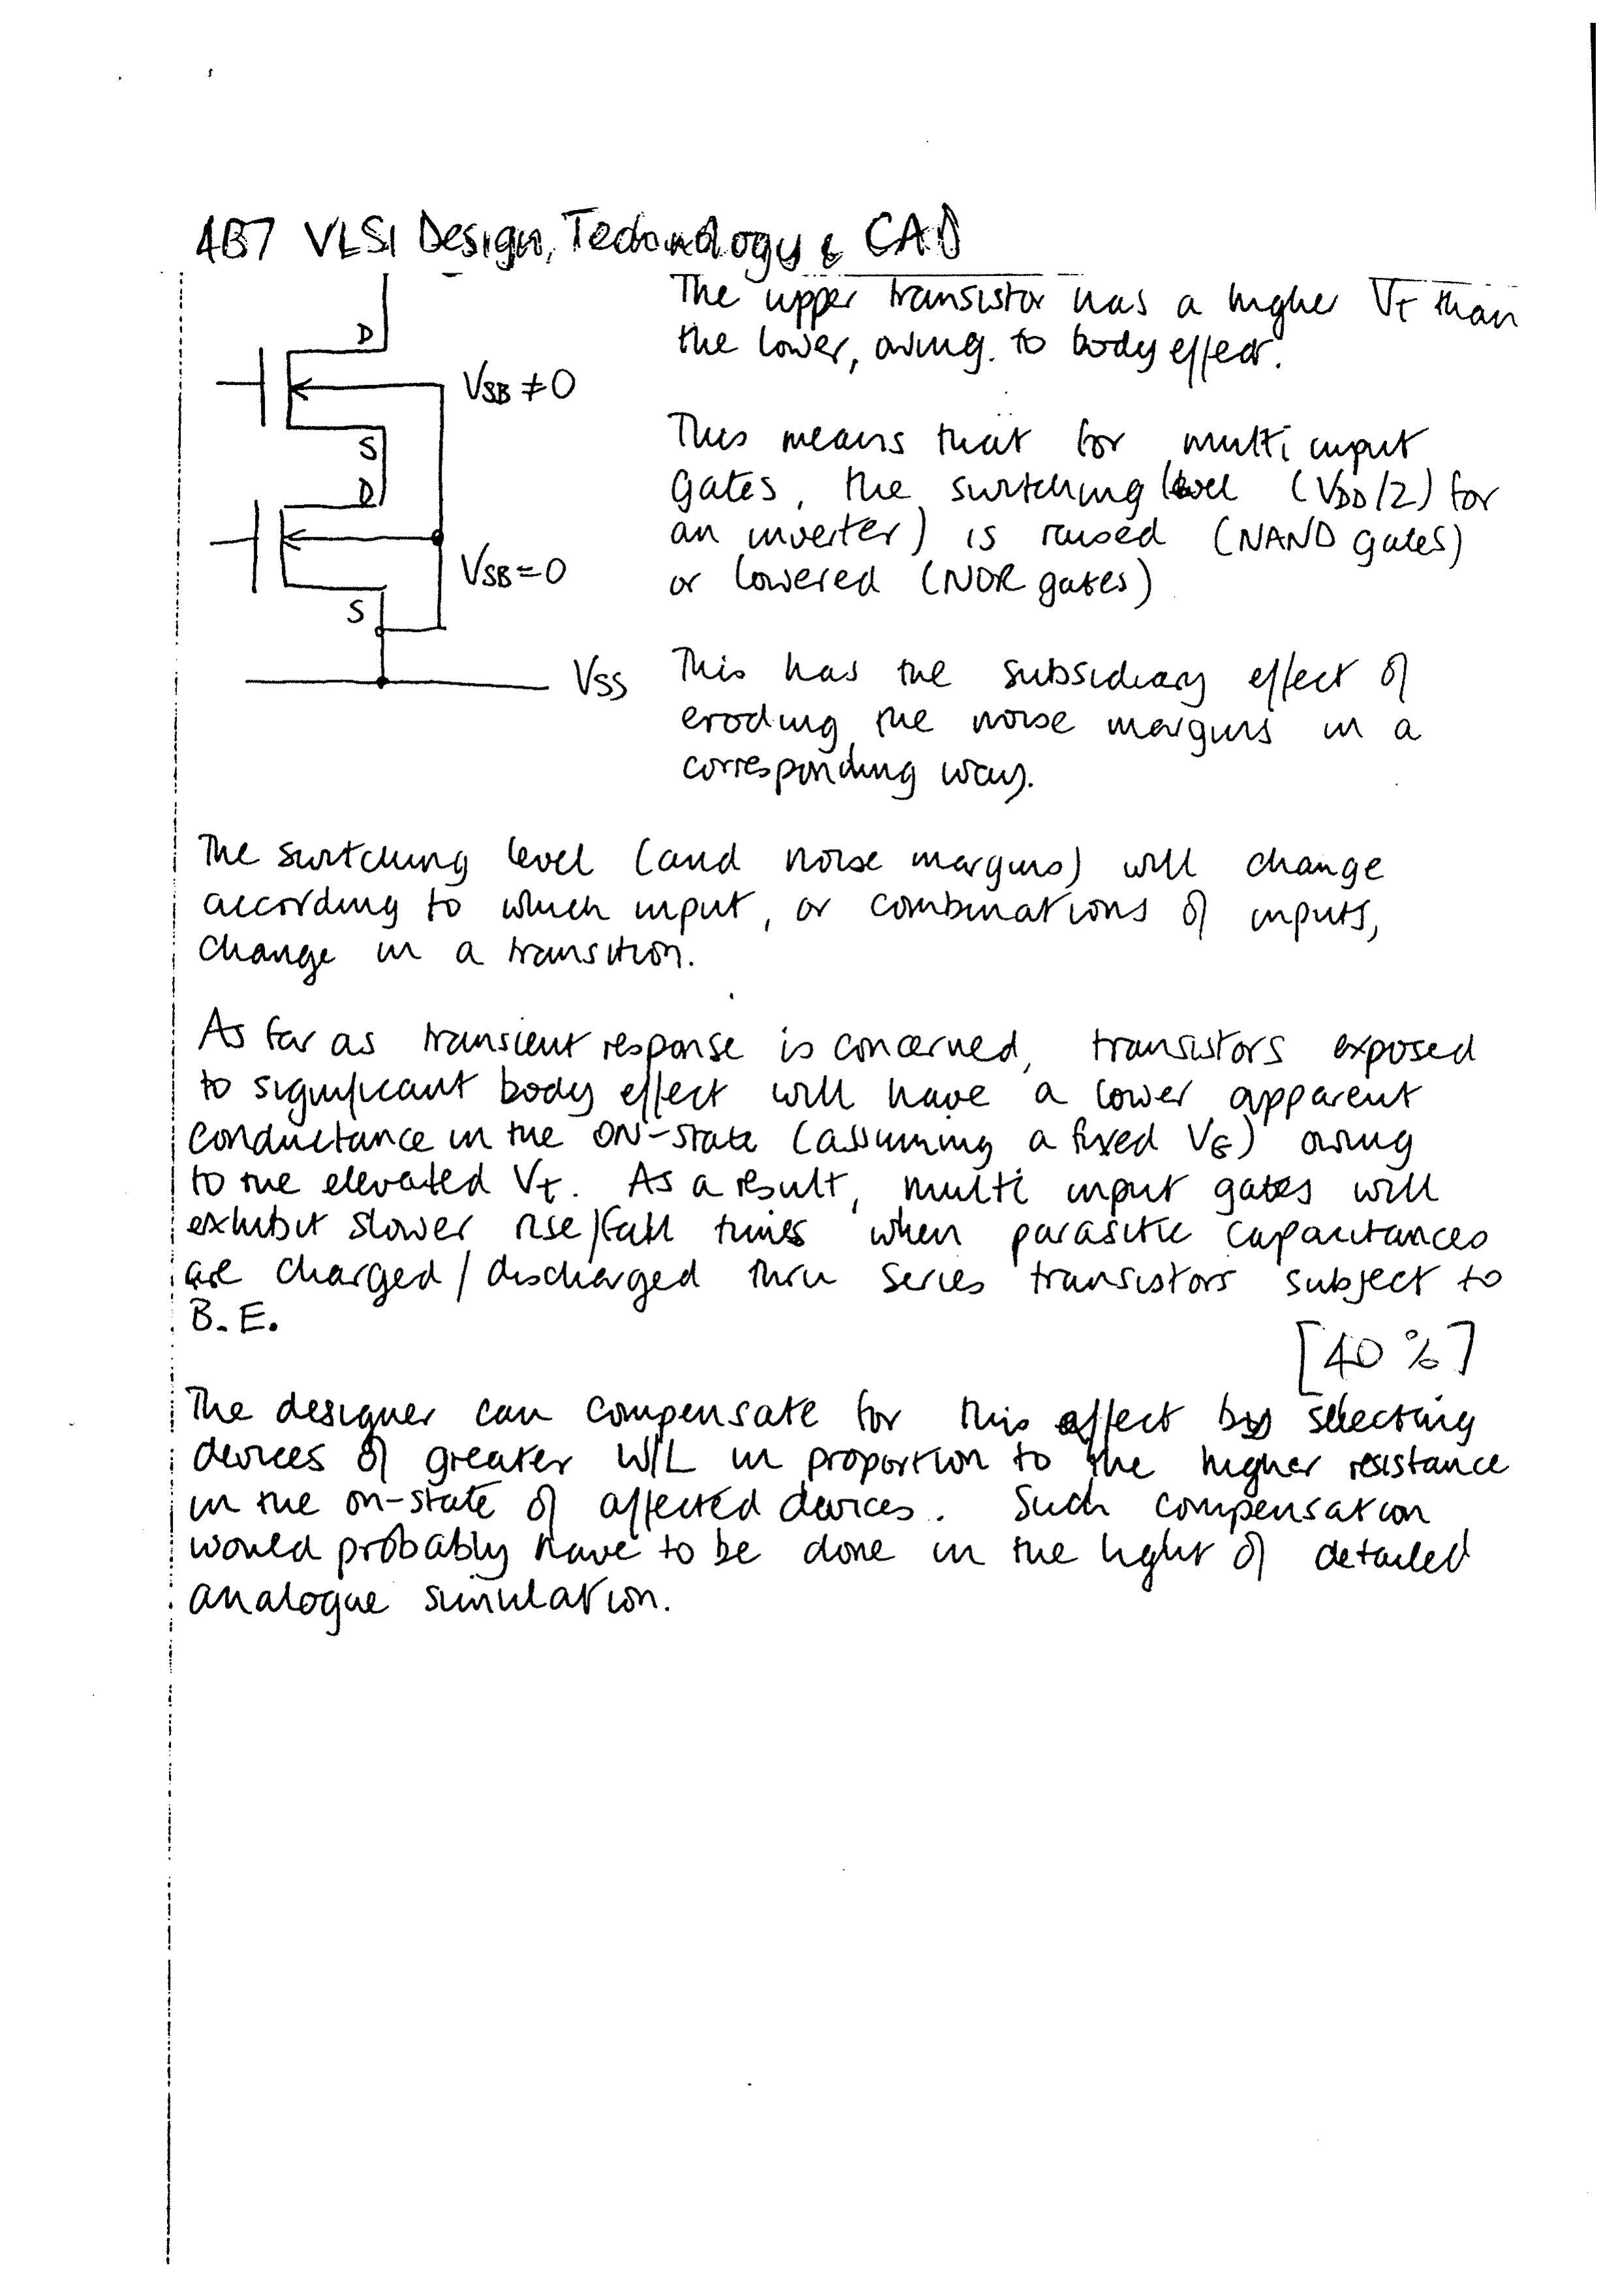 4B7 VLSI Design, Technology & CAD
The upper transistor has a higher VT than
the lower, owing. to body effect.
D
VSB ≠ 0
S
D
VSB = 0
S
VSS
This means that for multi input
gates, the switching level (VDD/2) for
an inverter) is raised (NAND gates)
or lowered (NOR gates)
This has the subsidiary effect of
eroding the noise margins in a
corresponding way.
The switching level (and noise margins) will change
according to which input, or combinations of inputs,
change in a transition.
As far as transient response is concerned, transistors exposed
to significant body effect will have a lower apparent
conductance in the ON-state (assuming a fixed VG) owing
to the elevated Vt. As a result, multi input gates will
exhibit slower rise/fall times when parasitic capacitances
are charged/discharged thru series transistors subject to
B.E.
[40%]
The designer can compensate for this effect by selecting
devices of greater W/L in proportion to the higher resistance
in the on-state of affected devices. Such compensation
would probably have to be done in the light of detailed
analogue simulation.